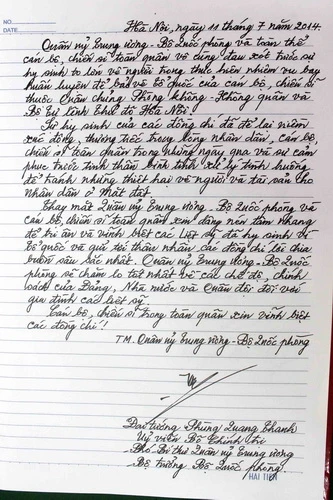 NO.
DATE
Hà Nội, ngày 11 tháng 7 năm 2014.
Quân ủy Trung ương - Bộ Quốc phòng và toàn thể
cán bộ, chiến sĩ toàn quân vô cùng đau xót trước sự
hy sinh to lớn về người trong thực hiện nhiệm vụ bay
huấn luyện để bảo vệ Tổ quốc của cán bộ, chiến sĩ
thuộc Quân chủng Phòng không - Không quân và
Bộ Tư lệnh Thủ đô Hà Nội!
Sự hy sinh của các đồng chí đã để lại niềm
xúc động, thương tiếc trong lòng nhân dân, cán bộ,
chiến sĩ toàn quân trong những ngày qua và sự cảm
phục trước tinh thần bình tĩnh xử lý tình huống
để tránh những thiệt hại về người và tài sản cho
nhân dân ở mặt đất.
Thay mặt Quân ủy Trung ương - Bộ Quốc phòng và
cán bộ, chiến sĩ toàn quân xin dâng nén tâm nhang
để tri ân và vĩnh biệt các Liệt sỹ đã hy sinh vì
Tổ quốc và gửi tới thân nhân các đồng chí lời chia
buồn sâu sắc nhất. Quân ủy Trung ương - Bộ Quốc
phòng sẽ chăm lo tốt nhất về các chế độ, chính
sách của Đảng, Nhà nước và Quân đội đối với
gia đình các liệt sỹ.
Cán bộ, chiến sĩ trong toàn quân xin vĩnh biệt
các đồng chí!
T.M. Quân ủy Trung ương - Bộ Quốc phòng
Đại tướng Phùng Quang Thanh
Uỷ viên Bộ Chính trị
Phó Bí thư Quân ủy Trung ương
Bộ trưởng Bộ Quốc phòng.
HẢI TIẾN